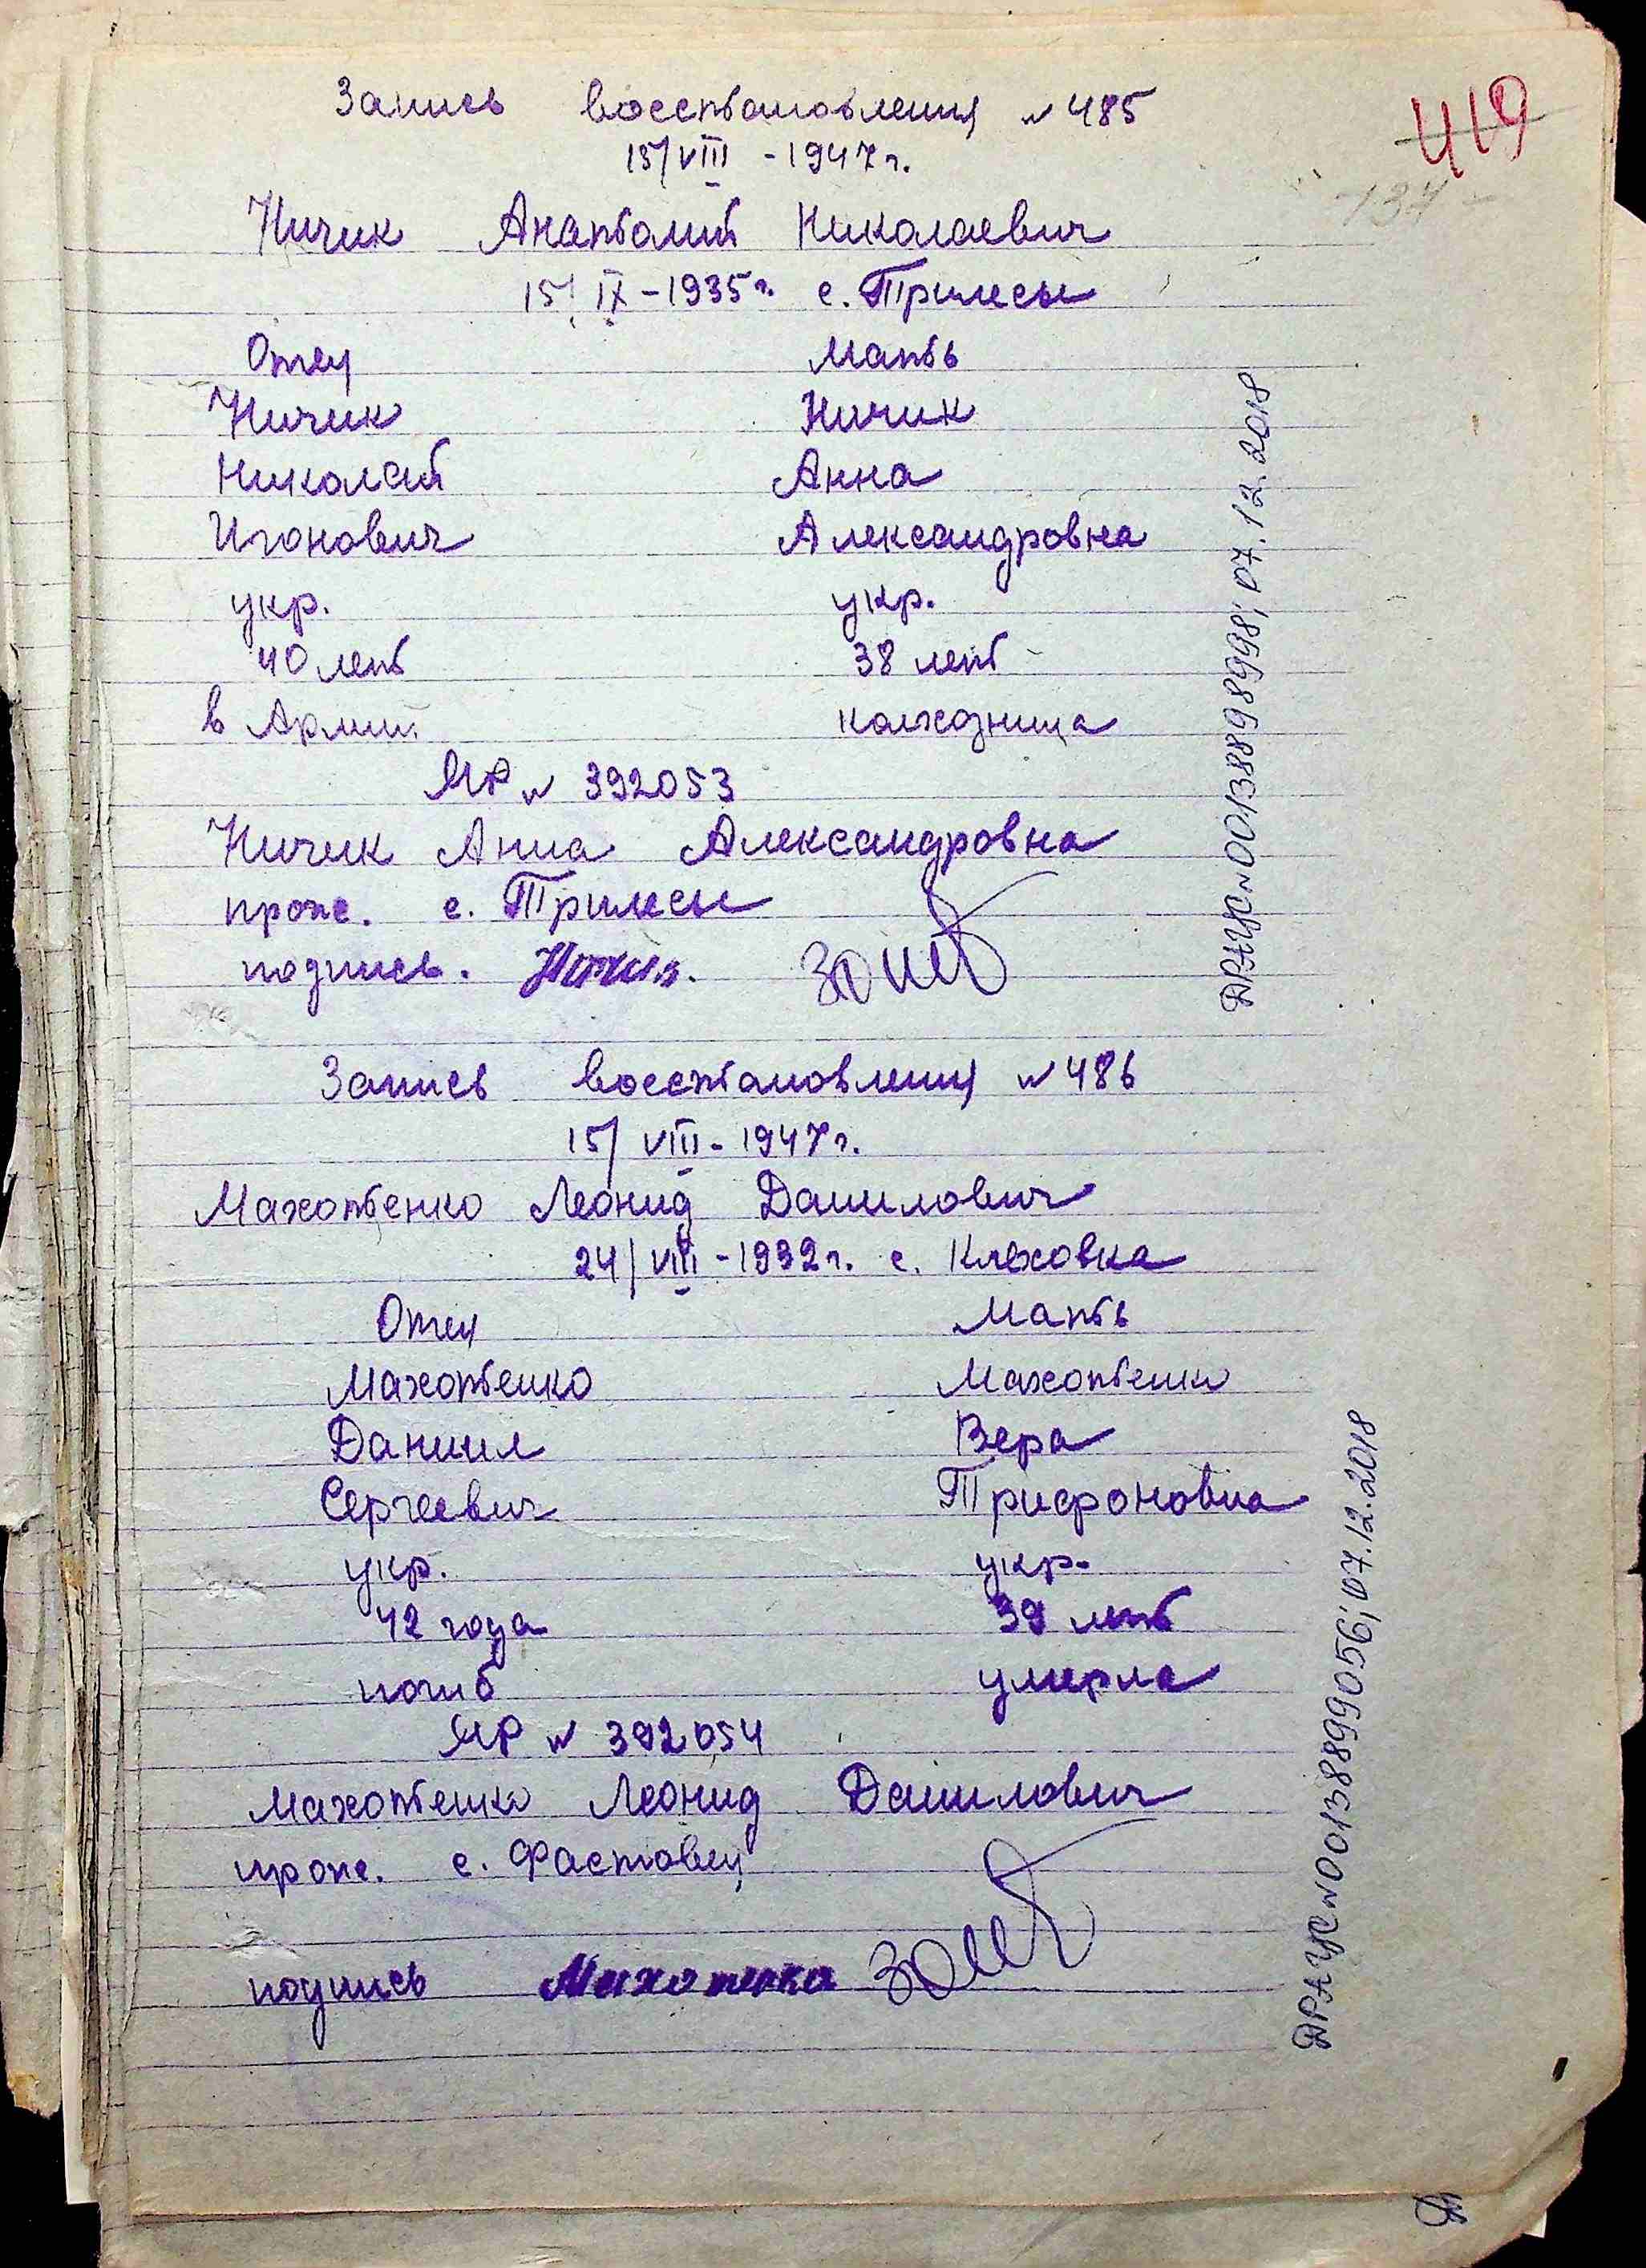 419
134
Запись восстановления № 485
15/VIII - 1947 г.
Ничик Анатолий Николаевич
15/IX - 1935 г. с. Тримесы
Отец Мать
Ничик Ничик
Николай Анна
Игонович Александровна
укр. укр.
40 лет 38 лет
в Армии колхозница
ЯР № 392053
Ничик Анна Александровна
прож. с. Тримесы
подпись. Ничик.
ДРАЦС № 00138898998; 07.12.2018
Запись восстановления № 486
15/VIII - 1947 г.
Махотенко Леонид Данилович
24/VIII - 1932 г. с. Клеховка
Отец Мать
Махотенко Махотенко
Даниил Вера
Сергеевич Трифоновна
укр. укр.
42 года 39 лет
погиб умерла
ЯР № 392054
Махотенко Леонид Данилович
прож. с. Фастовец
подпись Махотенко
ДРАЦС № 00138899056; 07.12.2018